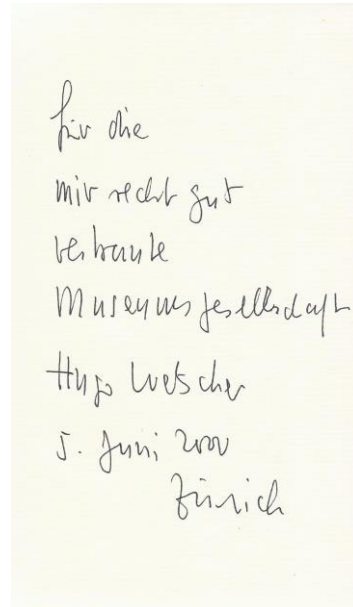 für die
mir recht gut
vertraute
Museumsgesellschaft
Hugo Loetscher
5. Juni 2000
Zürich